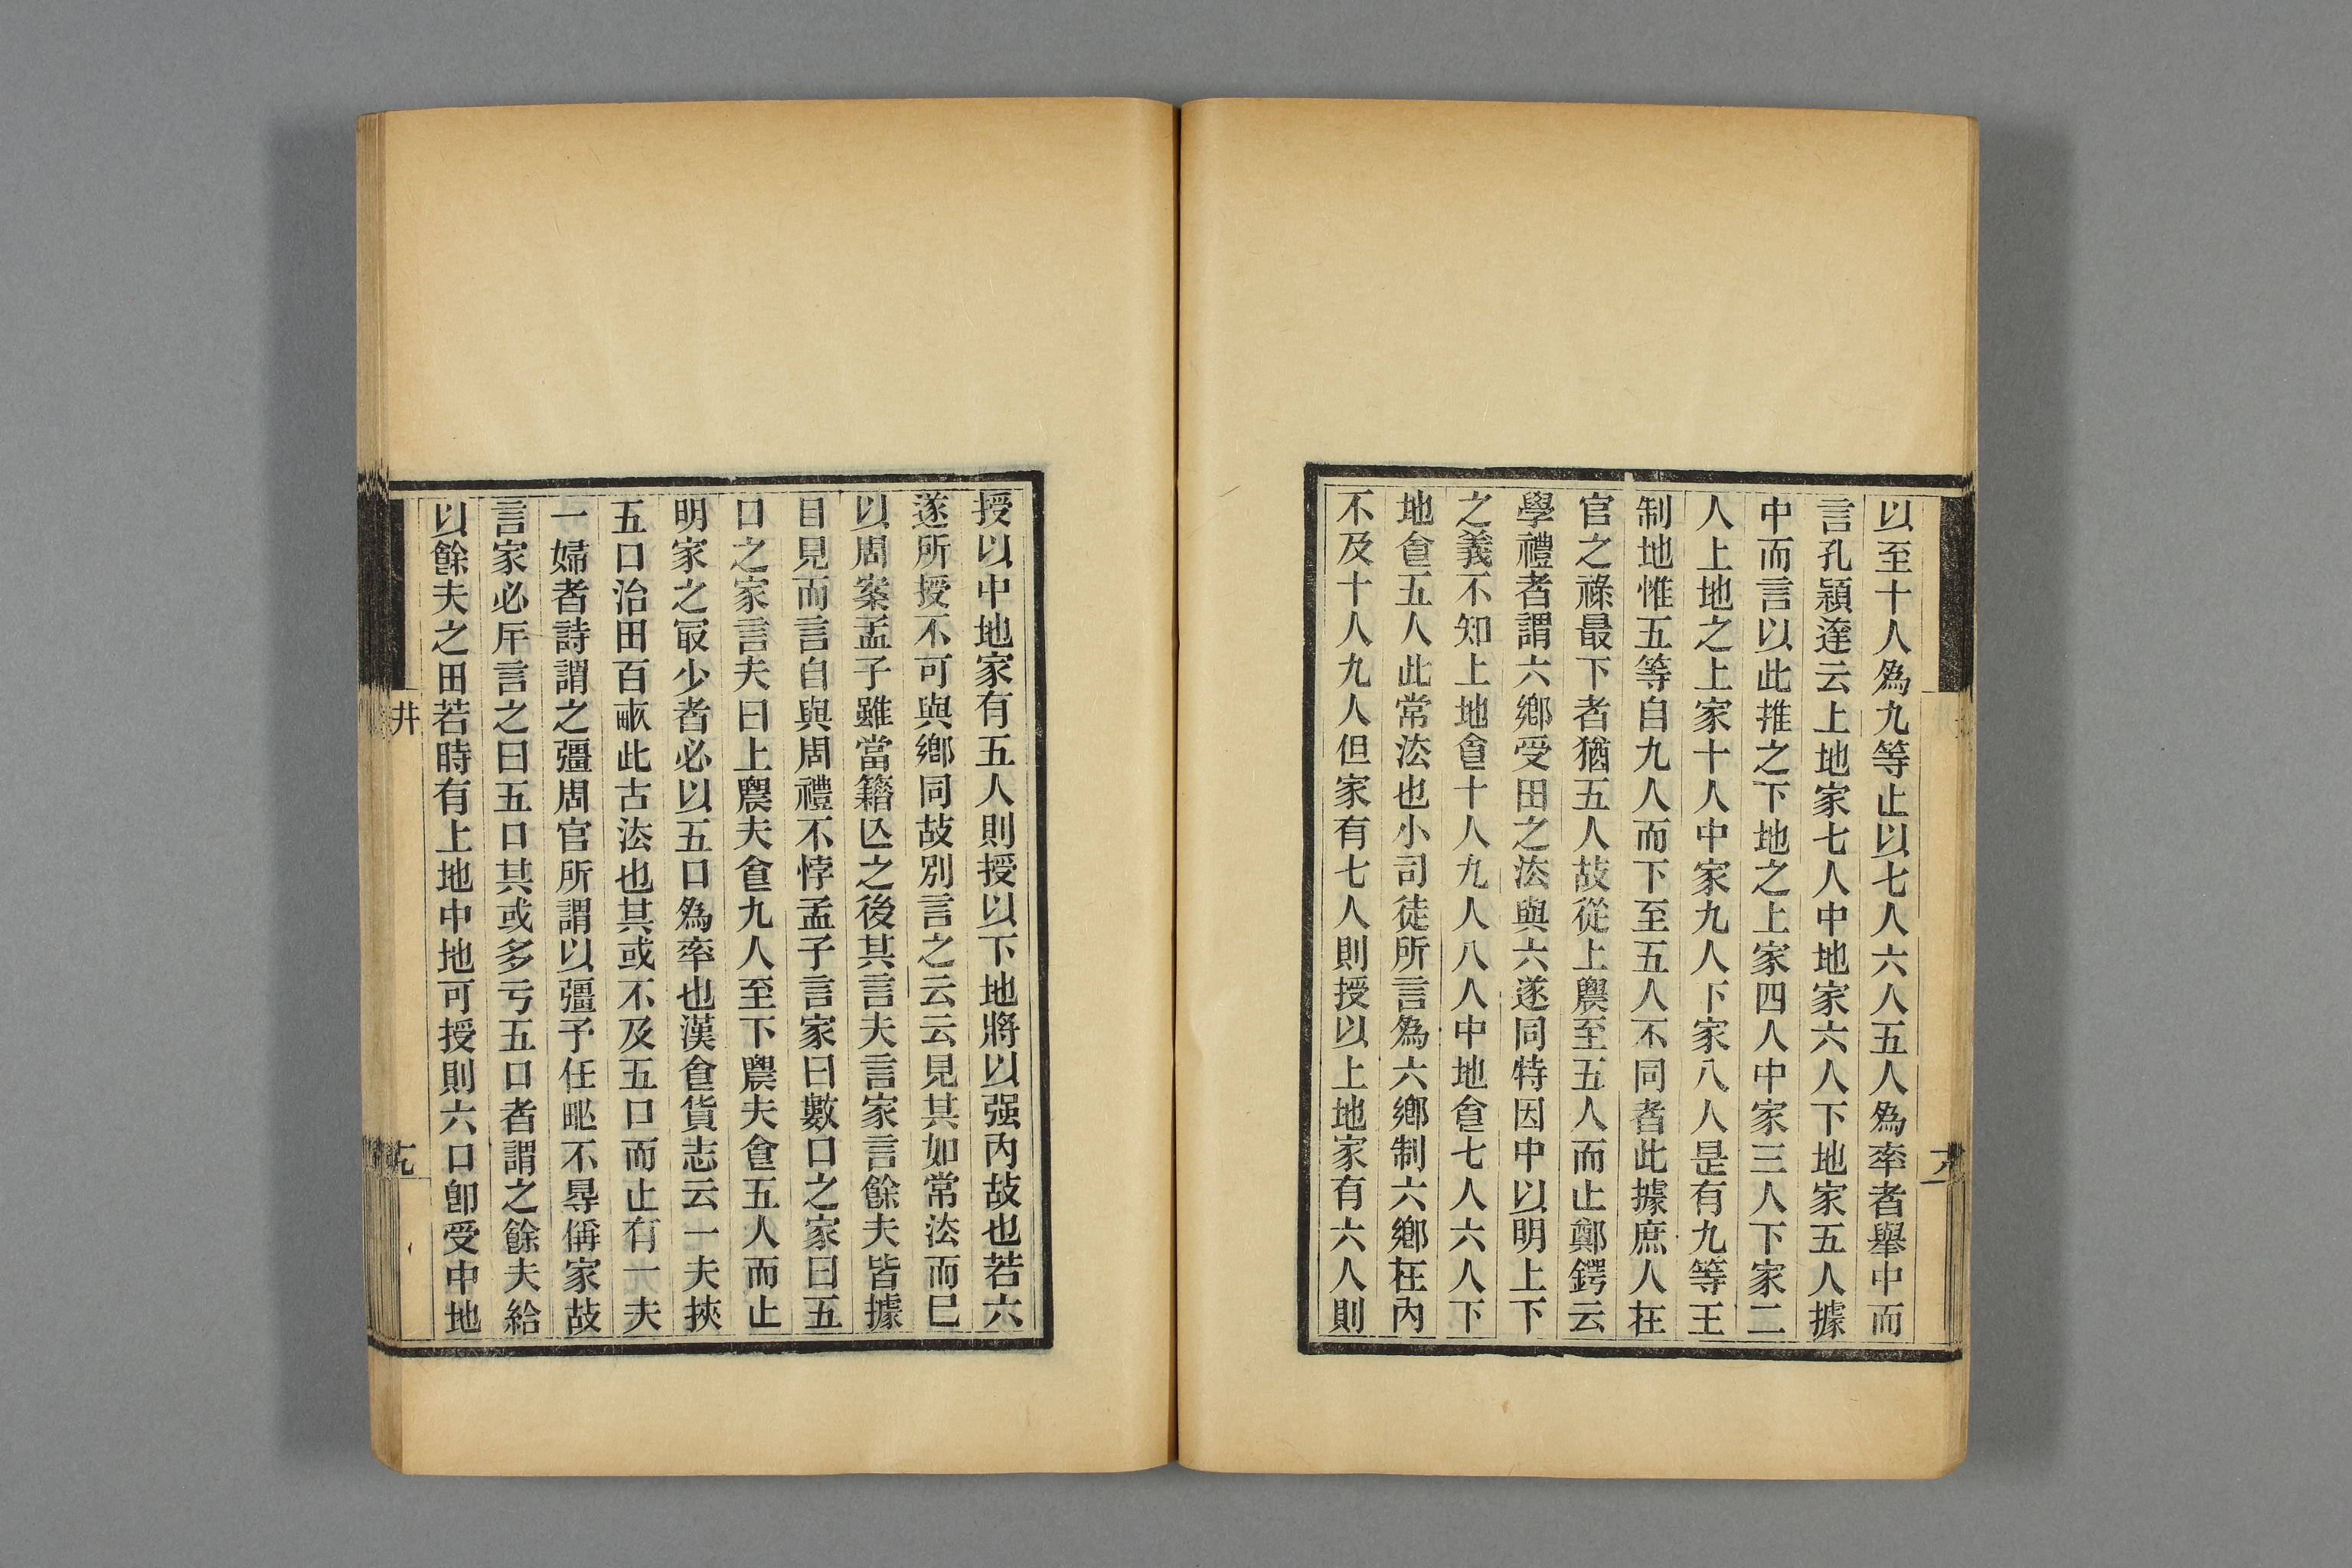 以至十人爲九等止以七人六人五人爲率者舉中而
言孔穎達云上地家七人中地家六人下地家五人據
中而言以此推之下地之上家四人中家三人下家二
人上地之上家十人中家九人下家八人是有九等王
制地惟五等自九人而下至五人不同者此據庶人在
官之祿最下者猶五人故從上農至五人而止鄭鍔云
學禮者謂六鄉受田之法與六遂同特因中以明上下
之義不知上地食十人九人八人中地食七人六人下
地食五人此常法也小司徒所言爲六鄉制六鄉在內
不及十人九人但家有七人則授以上地家有六人則
授以中地家有五人則授以下地將以强內故也若六
遂所授不可與鄉同故別言之云云見其如常法而巳
以周案孟子雖當籍亾之後其言夫言家言餘夫皆據
目見而言自與周禮不悖孟子言家曰數口之家曰五
口之家言夫曰上農夫食九人至下農夫食五人而止
明家之冣少者必以五口爲率也漢食貨志云一夫挾
五口治田百畞此古法也其或不及五口而止有一夫
一婦者詩謂之彊周官所謂以彊予任甿不得偁家故
言家必斥言之曰五口其或多亏五口者謂之餘夫給
以餘夫之田若時有上地中地可授則六口卽受中地
井